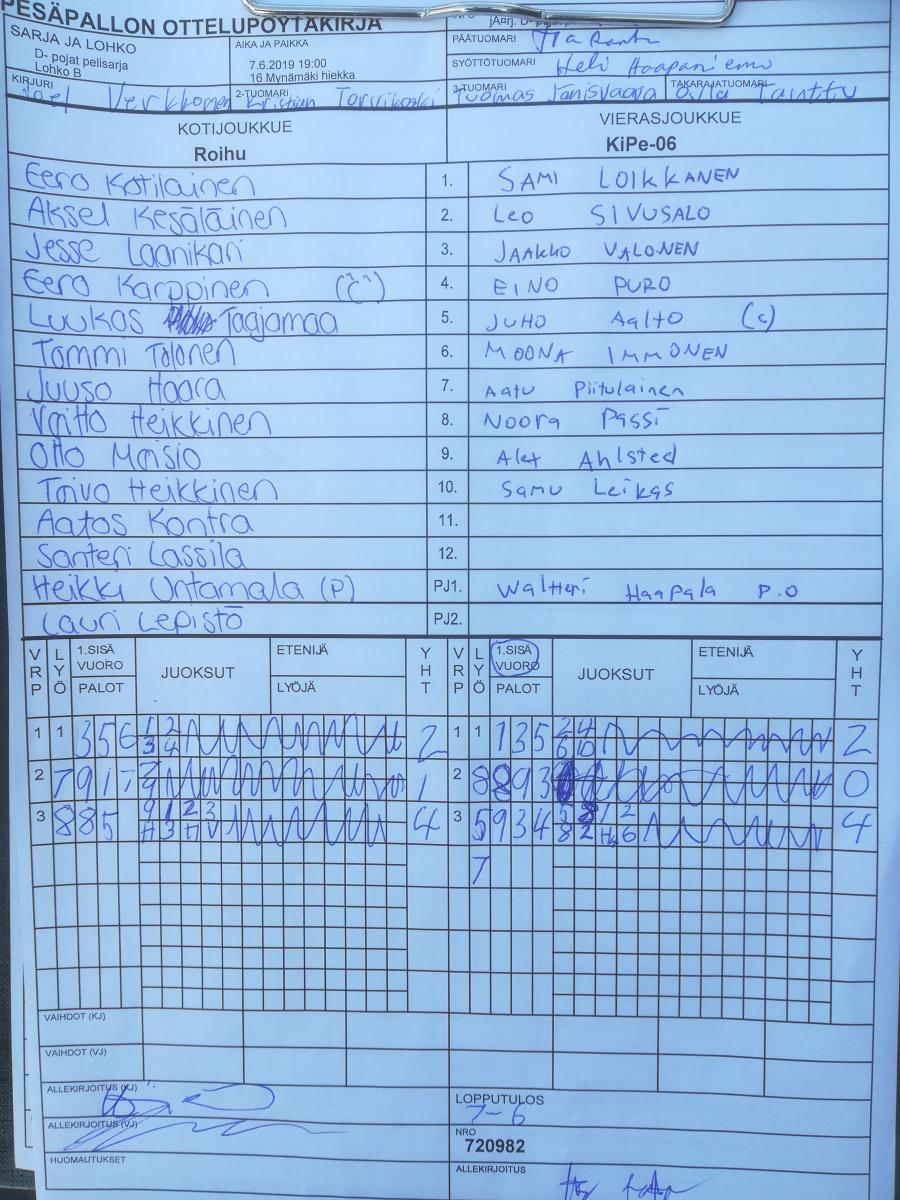 PESÄPALLON OTTELUPÖYTÄKIRJA
SARJA JA LOHKO
D- pojat pelisarja
Lohko B
AIKA JA PAIKKA
7.6.2019 19:00
16 Mynämäki hiekka
PÄÄTUOMARI
SYÖTTÖTUOMARI Heli Haapaniemi
KIRJURI Joel Verkkonen
2-TUOMARI Kristian
3-TUOMARI Tuomas Jänisvaara
TAKARAJATUOMARI
KOTIJOUKKUE
Roihu
VIERASJOUKKUE
KiPe-06
Eero Kotilainen 1. SAMI LOIKKANEN
Aksel Kesäläinen 2. Leo SIVUSALO
Jesse Laanikari 3. JAAKKO VALONEN
Eero Karppinen ("C") 4. EINO PURO
Luukas Taajamaa 5. JUHO Aalto (c)
Tommi Tolonen 6. MOONA IMMONEN
Juuso Haara 7. Aatu Piitulainen
Voitto Heikkinen 8. Noora Pässi
Otto Moisio 9. Alex Ahlsted
Toivo Heikkinen 10. Samu Leikas
Aatos Kontra 11.
Santeri Lassila 12.
Heikki Untamala (P) PJ1. Waltteri Haapala P.O
Lauri Lepistö PJ2.
VRP LYÖ 1.SISÄ VUORO PALOT JUOKSUT ETENIJÄ LYÖJÄ YHT VRP LYÖ 1.SISÄ VUORO PALOT JUOKSUT ETENIJÄ LYÖJÄ YHT
1 1 356 1 2 2 1 1 135 2 4 2
3 4 6 10
2 7 917 1 2 8 893 0
3 8 85 9 1 2 3 4 3 5 934 4
7
VAIHDOT (KJ)
VAIHDOT (VJ)
ALLEKIRJOITUS (KJ)
LOPPUTULOS
7-6
ALLEKIRJOITUS (VJ)
NRO
720982
HUOMAUTUKSET
ALLEKIRJOITUS